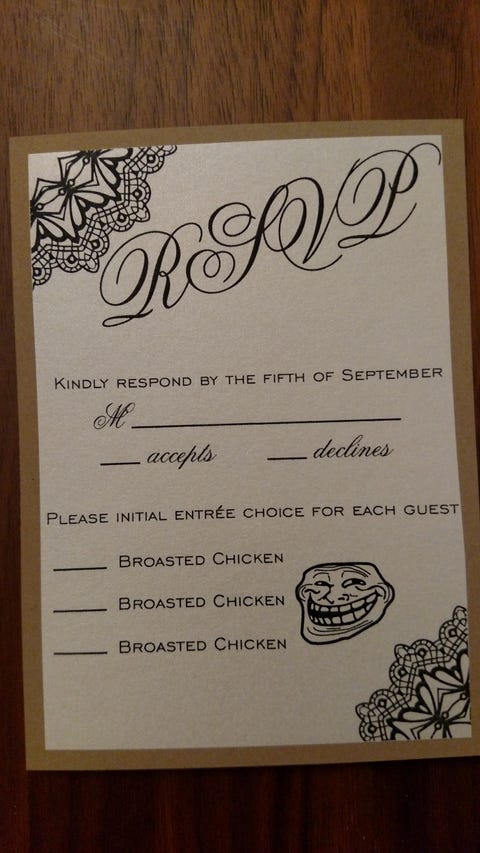 RSVP
Kindly respond by the fifth of September
M
accepts declines
Please initial entrée choice for each guest
Broasted Chicken
Broasted Chicken
Broasted Chicken